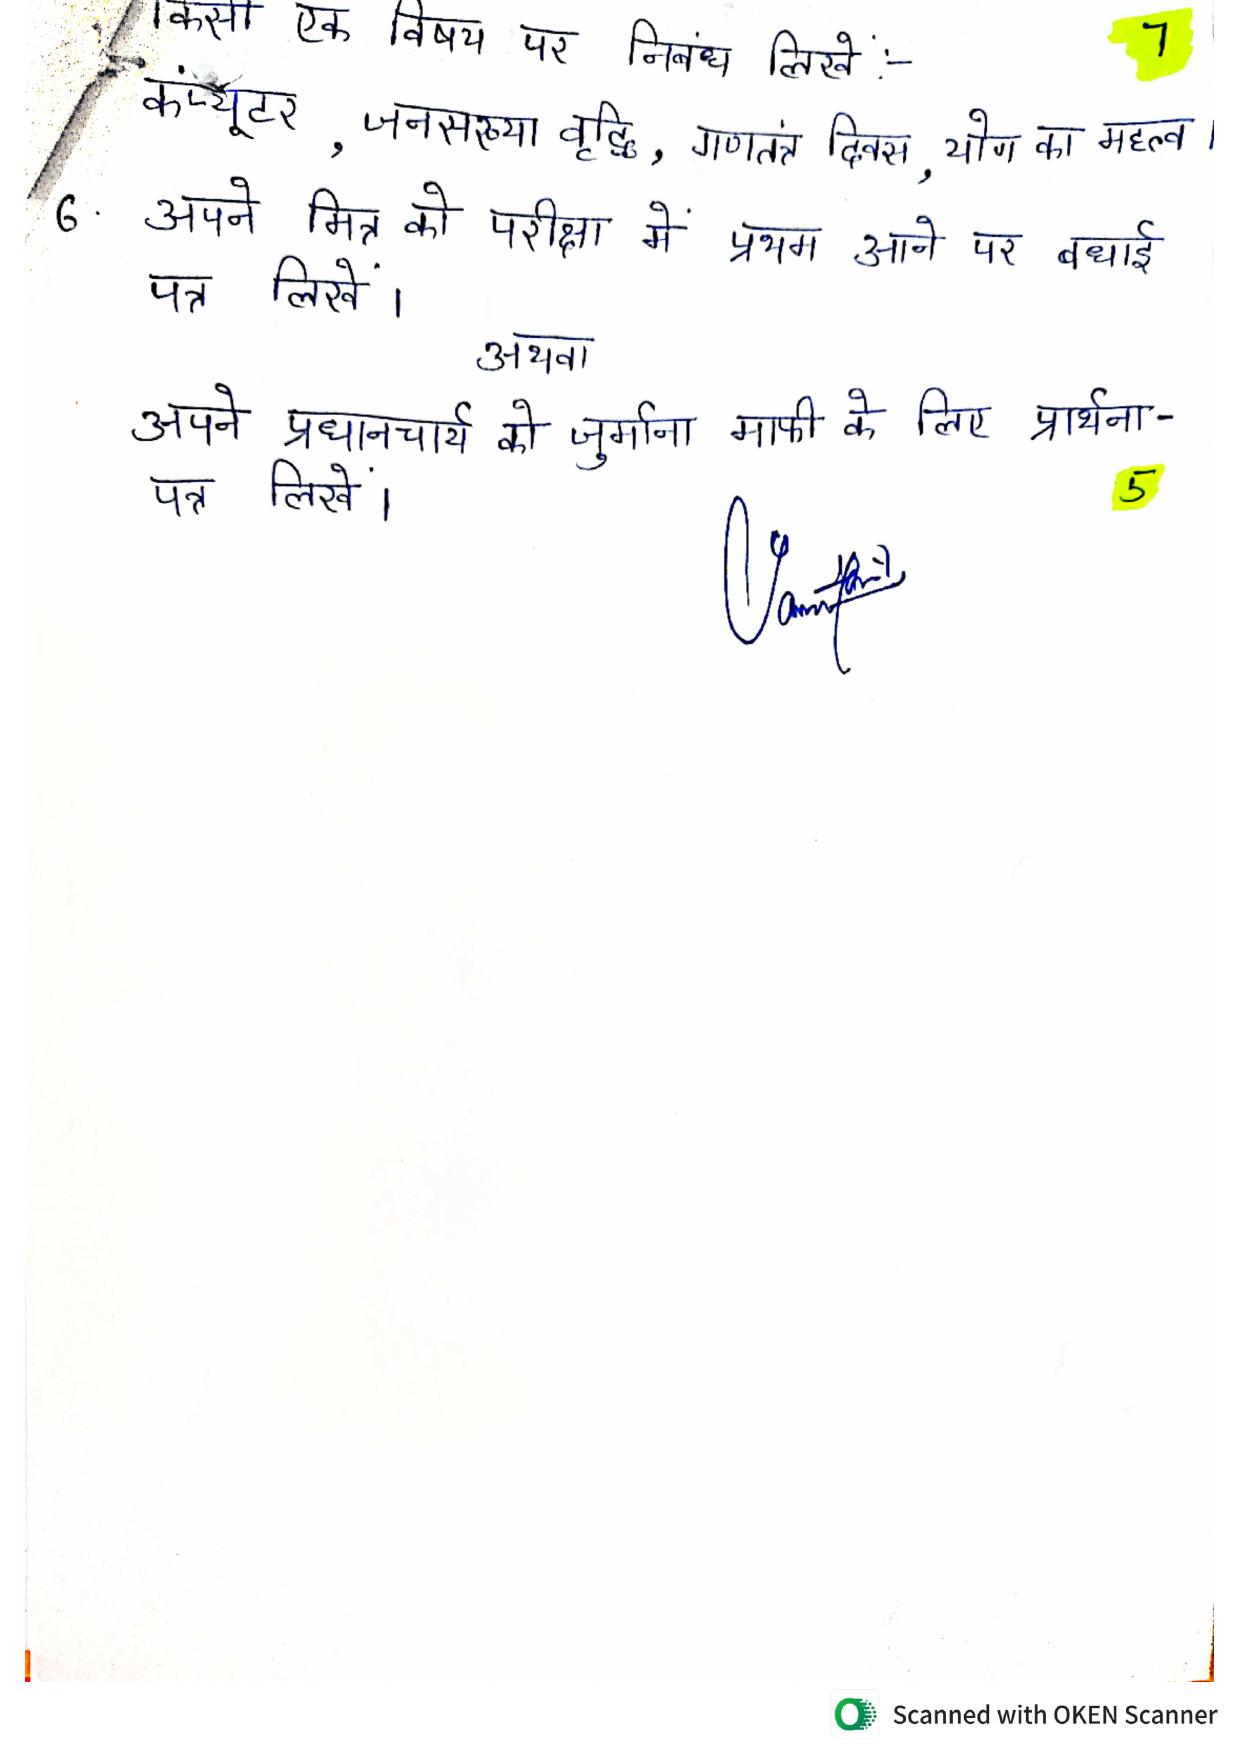 किसी एक विषय पर निबंध लिखें :- 7
कंप्यूटर , जनसख्या वृद्धि, गणतंत्र दिवस, योग का महत्व ।
6. अपने मित्र को परीक्षा में प्रथम आने पर बधाई
पत्र लिखें ।
अथवा
अपने प्रधानचार्य को जुर्माना माफी के लिए प्रार्थना-
पत्र लिखें । 5
Scanned with OKEN Scanner